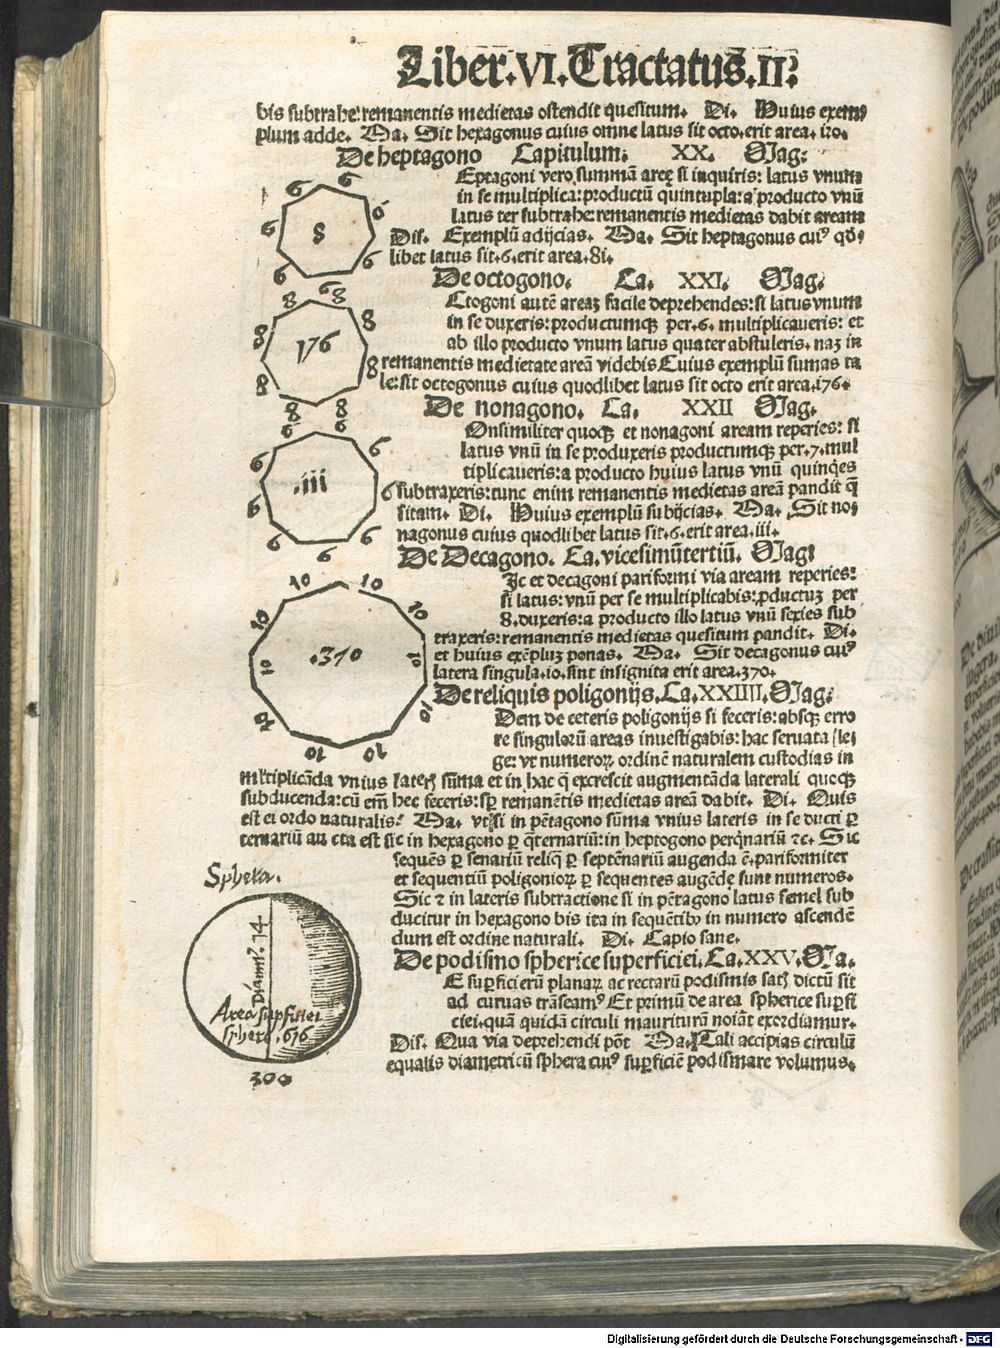 Liber.VI.Tractatus.II?
bis subtrahe: remanentis medietas ostendit quesitum. Di. Huius exem
plum adde. Ma. Sit hexagonus cuius omne latus sit octo.erit area.
De heptagono Capitulum. XX. Mag:
Eptagoni vero summā areę si inquiris: latus vnum
in se multiplica: productū quintupla: a producto vnū
latus ter subtrahe: remanentis medietas dabit aream
Dis. Exemplū adijcias. Ma. Sit heptagonus cui⁹ qd
libet latus sit.6.erit area.8i.
De octogono. Ca. XXI. Mag.
Ctogoni autē areaꝫ facile deprehendes: si latus vnum
in se duxeris: productumqꝫ per.6. multiplicaueris: et
ab illo producto vnum latus quater abstuleris. naꝫ in
remanentis medietate areā videbis Cuius exemplū sumas ta
le: sit octogonus cuius quodlibet latus sit octo erit area.176.
De nonagono. Ca. XXII Mag.
Onsimiliter quoqꝫ et nonagoni aream reperies: si
latus vnū in se produxeris productumqꝫ per.7.mul
tiplicaueris: a producto huius latus vnū quinqꝫes
subtraxeris: tunc enim remanentis medietas areā pandit q̄
sitam. Di. Huius exemplū subijcias. Ma. Sit no
nagonus cuius quodlibet latus sit.6.erit area.iii.
De Decagono. Ca. vicesimūtertiū. Mag
Ic et decagoni pariformi via aream reperies:
si latus: vnū per se multiplicabis: ꝓductuꝫ per
8.duxeris: a producto illo latus vnū sexies sub
traxeris: remanentis medietas quesitum pandit. Di.
et huius exēpluꝫ ponas. Ma. Sit decagonus cui⁹
latera singula.io.sint insignita erit area.370.
De reliquis poligonijs. Ca.XXIIII. Mag:
Dem de ceteris poligonijs si feceris: absqꝫ erro
re singulorū areas inuestigabis: hac seruata lei
ge: vt numeroꝝ ordinē naturalem custodias in
multiplicāda vnius lateris sūma et in hac q̄ excrescit augmentāda laterali quoqꝫ
subducenda: cū em̄ hec feceris: sꝑ remanētis medietas areā dabit. Di. Quis
est ei ordo naturalis? Ma. vt si in pētagono sūma vnius lateris in se ducti ꝑ
ternariū aucta est sic in hexagono ꝑ q̄ternariū: in heptogono per qnariū ⁊c. Sic
sequēs ꝑ senariū reliq̄ ꝑ septēnariū augenda ē. pariformiter
et sequentiū poligonioꝝ ꝑ sequentes augēde sunt numeros.
Sic ⁊ in lateris subtractione si in pētagono latus semel sub
ducitur in hexagono bis ita in sequētibꝰ in numero ascendē
dum est ordine naturali. Di. Capio sane.
De podismo spherice superficiei. Ca.XXV. Ma.
E suꝑficierū planaꝝ ac rectarū podismis satꝭ dictū sit
ad curuas trāseam⁹ Et primū de area spherice suꝑfi
ciei. quā quidā circuli mauriturā noiāt exordiamur.
Dis. Qua via deprehendi pōt Ma. Tali accipias circulū
equalis diametricū sphera cui⁹ suꝑficiē podismare volumus.
6 6 6 6 6 6 6
8
8 8 8 8 8 8 8 8
176
6 6 6 6 6 6 6 6 6
.iii
10 10 10 10 10 10 10 10 10 10
.370
Sphera.
Diamr. 14
Area supficiei
sphere .616
300
Digitalisierung gefördert durch die Deutsche Forschungsgemeinschaft - DFG